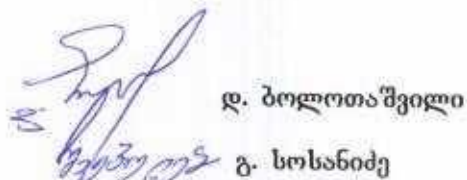 დ. ბოლოთაშვილი
გ. სოსანიძე